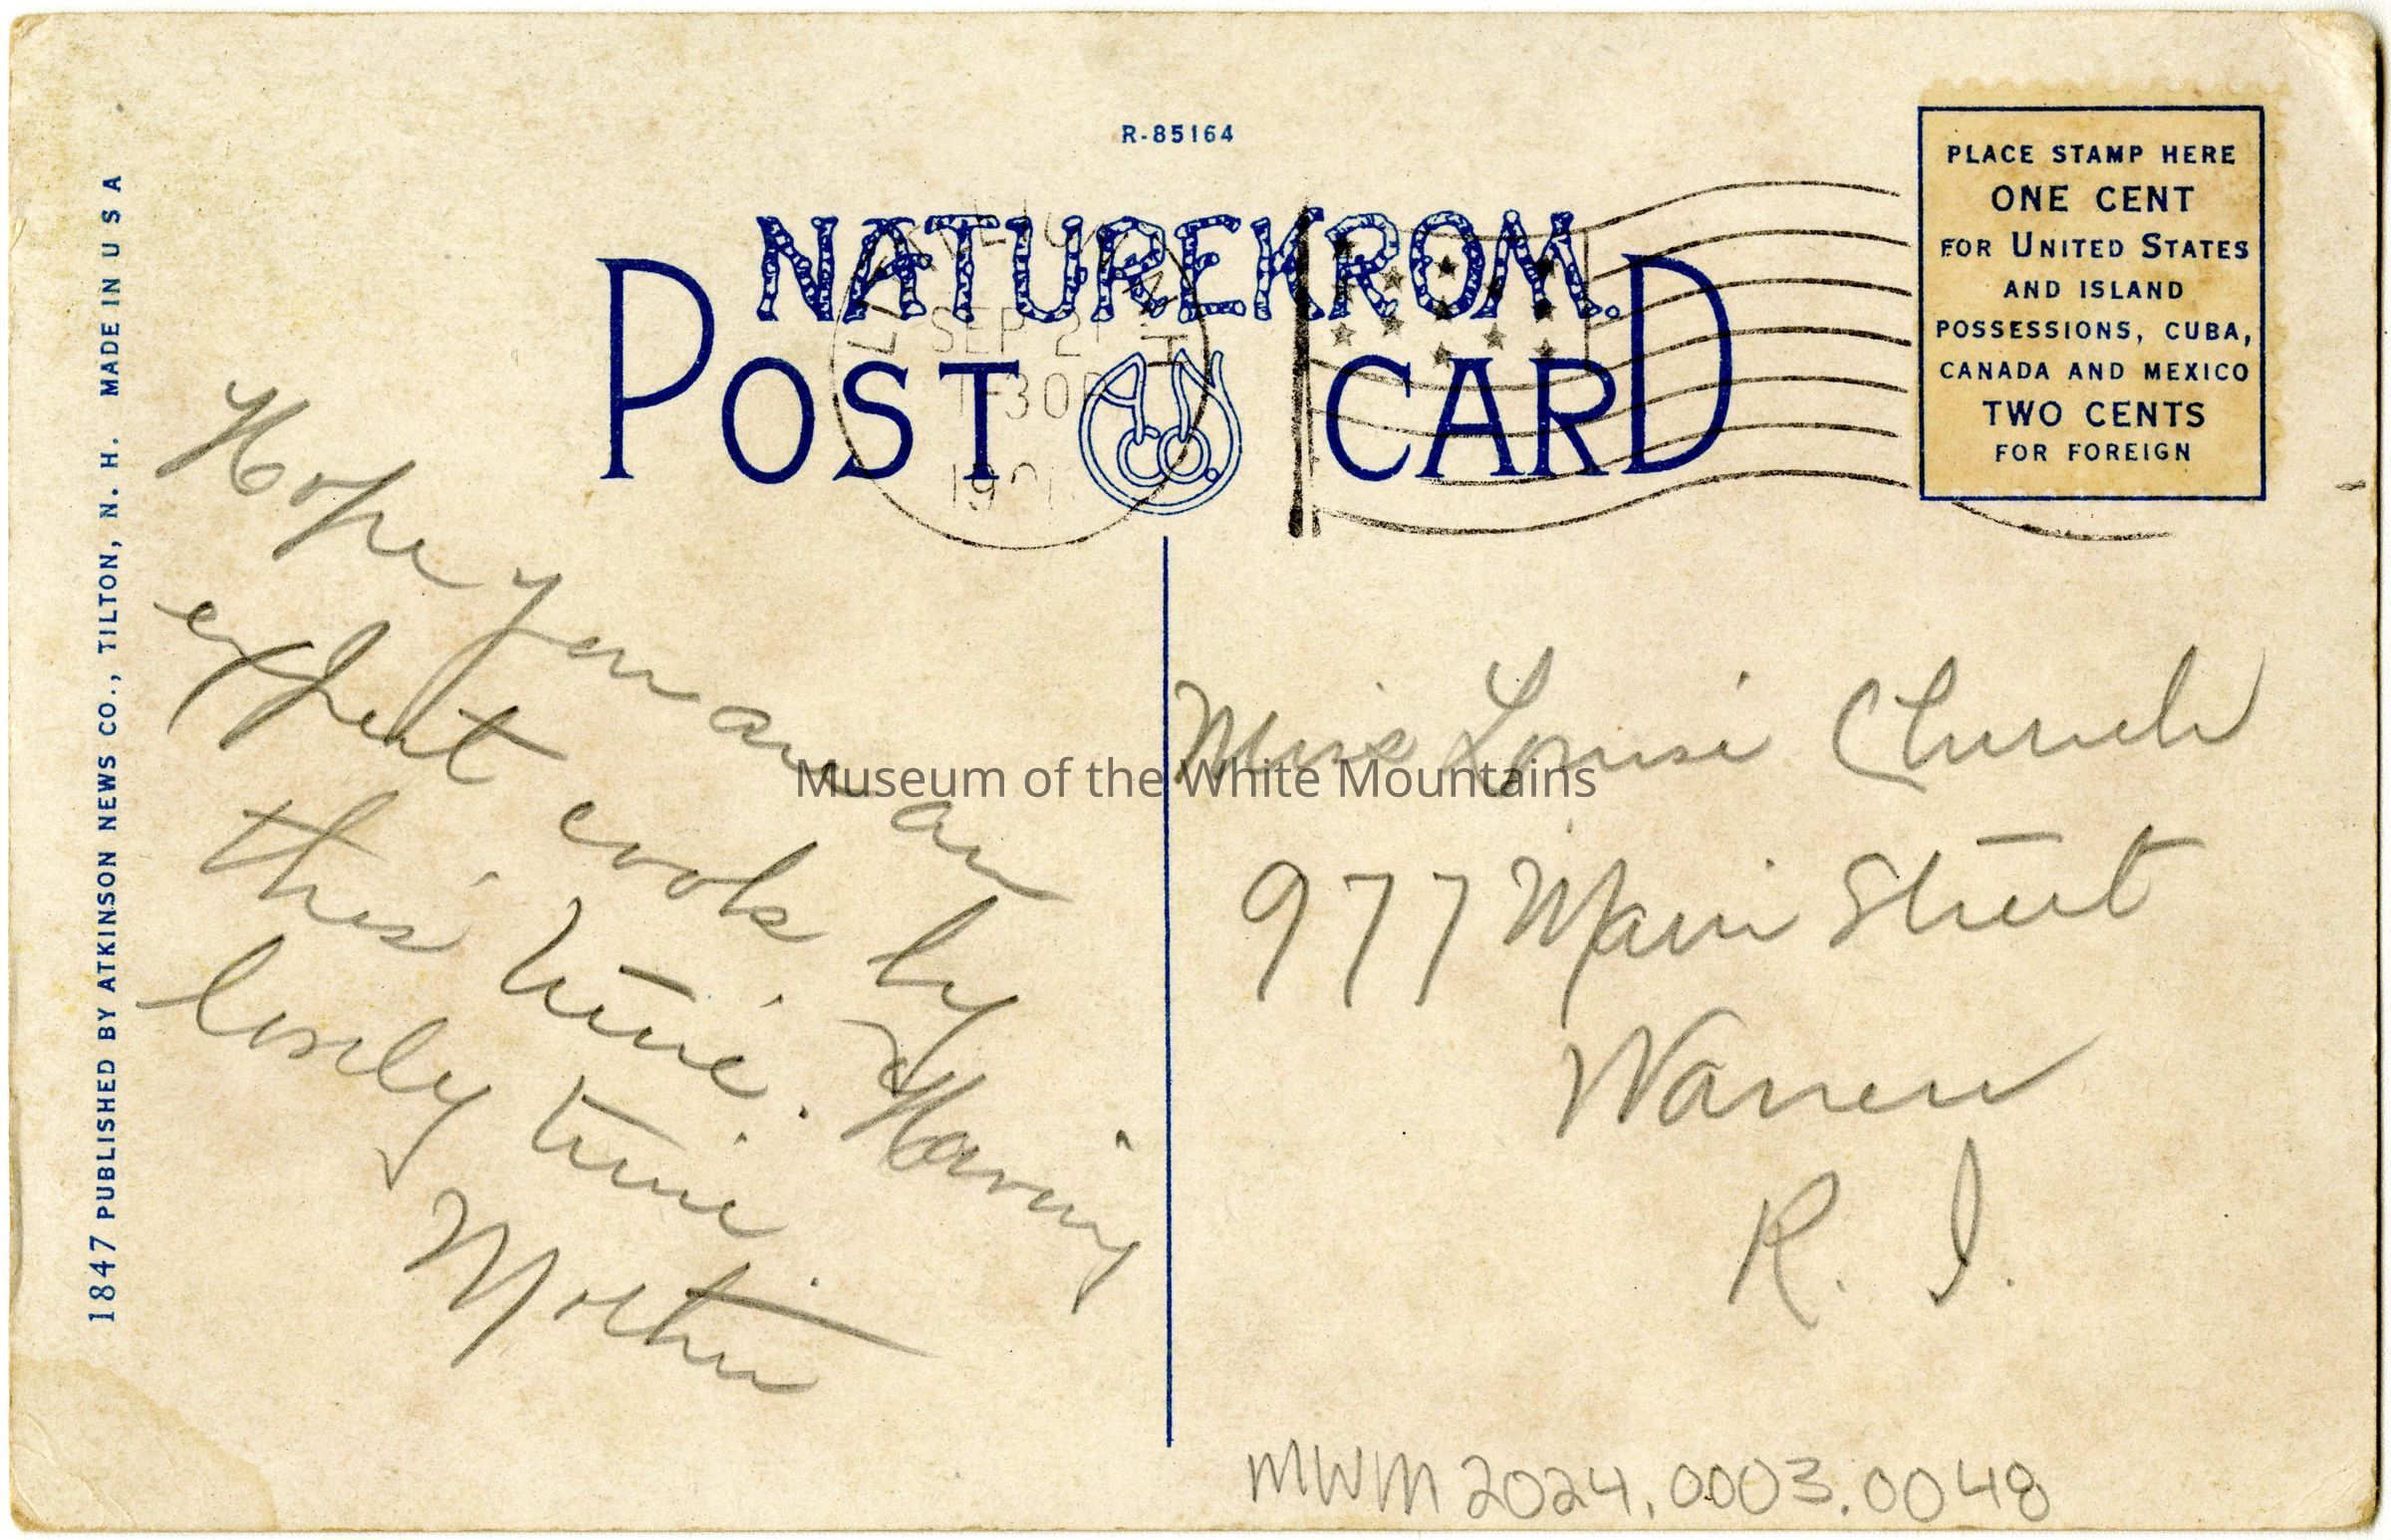 R-85164
NATUREKROM.
POST CARD
AN Co.
SEP 21
1-30P
PLACE STAMP HERE
ONE CENT
FOR UNITED STATES
AND ISLAND
POSSESSIONS, CUBA,
CANADA AND MEXICO
TWO CENTS
FOR FOREIGN
1847 PUBLISHED BY ATKINSON NEWS CO., TILTON, N. H. MADE IN U S A
Hope you are an
expert cook by
this time. Having
lovely time
Mother
Miss Louise Church
977 Main Street
Warren
R. I.
Museum of the White Mountains
MWM 2024.0003.0048